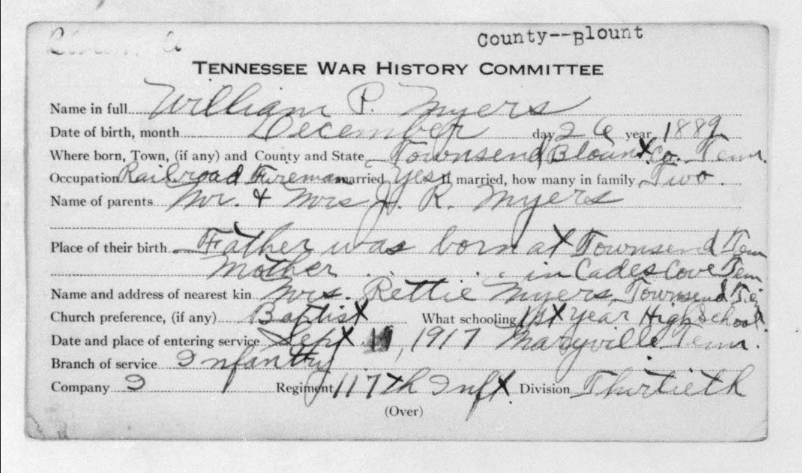 County--Blount
TENNESSEE WAR HISTORY COMMITTEE
Name in full William P. Myers
Date of birth, month December day 26 year 1889
Where born, Town, (if any) and County and State Townsend Blount Co. Tenn.
Occupation Railroad Fireman married Yes If married, how many in family Two
Name of parents Mr. & Mrs J. R. Myers
Place of their birth Father was born at Townsend Tenn
Mother . . . . in Cades Cove Tenn
Name and address of nearest kin Mrs. Rettie Myers, Townsend Te
Church preference, (if any) Baptist What schooling 1st year High School.
Date and place of entering service Sept , 1917 Maryville Tenn.
Branch of service Infantry
Company I Regiment 117th Inft Division Thirtieth
(Over)